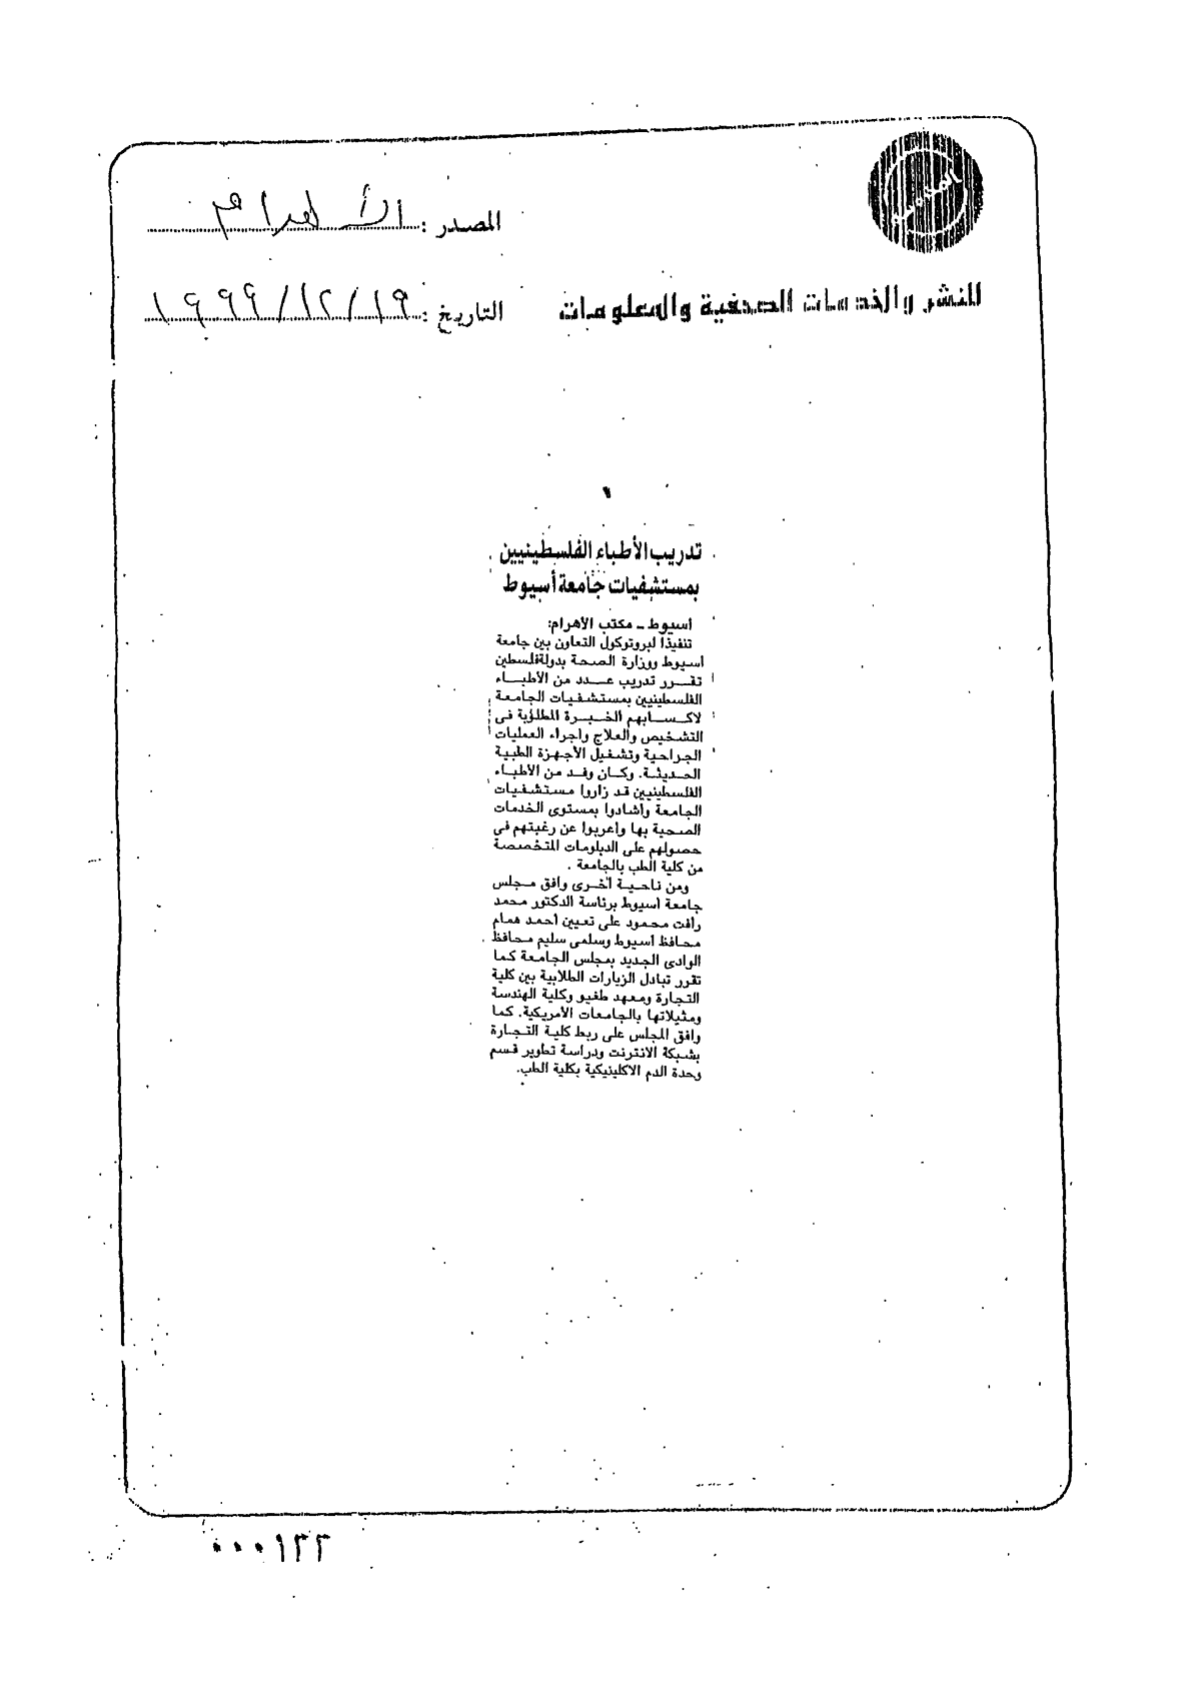 المصدر : الأهرام
للنشر والخدمات الصحفية والمعلومات
التاريخ : ١٩/١٢/١٩٩٩
تدريب الأطباء الفلسطينيين
بمستشفيات جامعة أسيوط
اسيوط ـ مكتب الأهرام:
تنفيذا لبروتوكول التعاون بين جامعة
اسيوط ووزارة الصحة بدولة فلسطين
تقرر تدريب عدد من الأطباء
الفلسطينيين بمستشفيات الجامعة
لاكسابهم الخبرة المطلوبة فى
التشخيص والعلاج واجراء العمليات
الجراحية وتشغيل الأجهزة الطبية
الحديثة. وكان وفد من الأطباء
الفلسطينيين قد زاروا مستشفيات
الجامعة وأشادوا بمستوى الخدمات
الصحية بها وأعربوا عن رغبتهم فى
حصولهم على الدبلومات المتخصصة
من كلية الطب بالجامعة .
ومن ناحية أخرى وافق مجلس
جامعة أسيوط برئاسة الدكتور محمد
رأفت محمود على تعيين أحمد همام
محافظ اسيوط وسلمى سليم محافظ
الوادى الجديد بمجلس الجامعة كما
تقرر تبادل الزيارات الطلابية بين كلية
التجارة ومعهد طفيو وكلية الهندسة
ومثيلاتها بالجامعات الأمريكية. كما
وافق المجلس على ربط كلية التجارة
بشبكة الانترنت ودراسة تطوير قسم
وحدة الدم الاكلينيكية بكلية الطب.
٠٠٠١٢٢